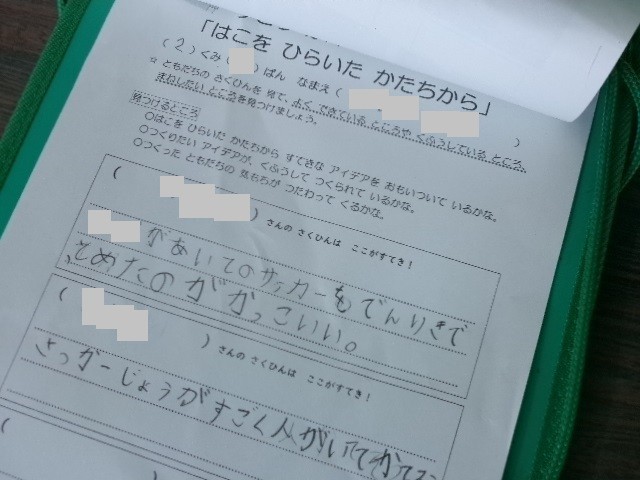 「はこを ひらいた かたちから」
(2)くみ( )ばん なまえ( )
☆ ともだちの さくひんを 見て、よく できている ところや くふうしている ところ、
まねしたい ところを見つけましょう。
見つけるところ
○はこを ひらいた かたちから すてきな アイデアを おもいついて いるかな。
○つくりたい アイデアが、くふうして つくられて いるかな。
○つくった ともだちの 気もちが つたわって くるかな。
( )さんの さくひんは ここがすてき!
があいてのサッカーもでんりきで
とめたのがかっこいい。
( )さんの さくひんは ここがすてき!
さっかーじょうがすごく人がいて
( )